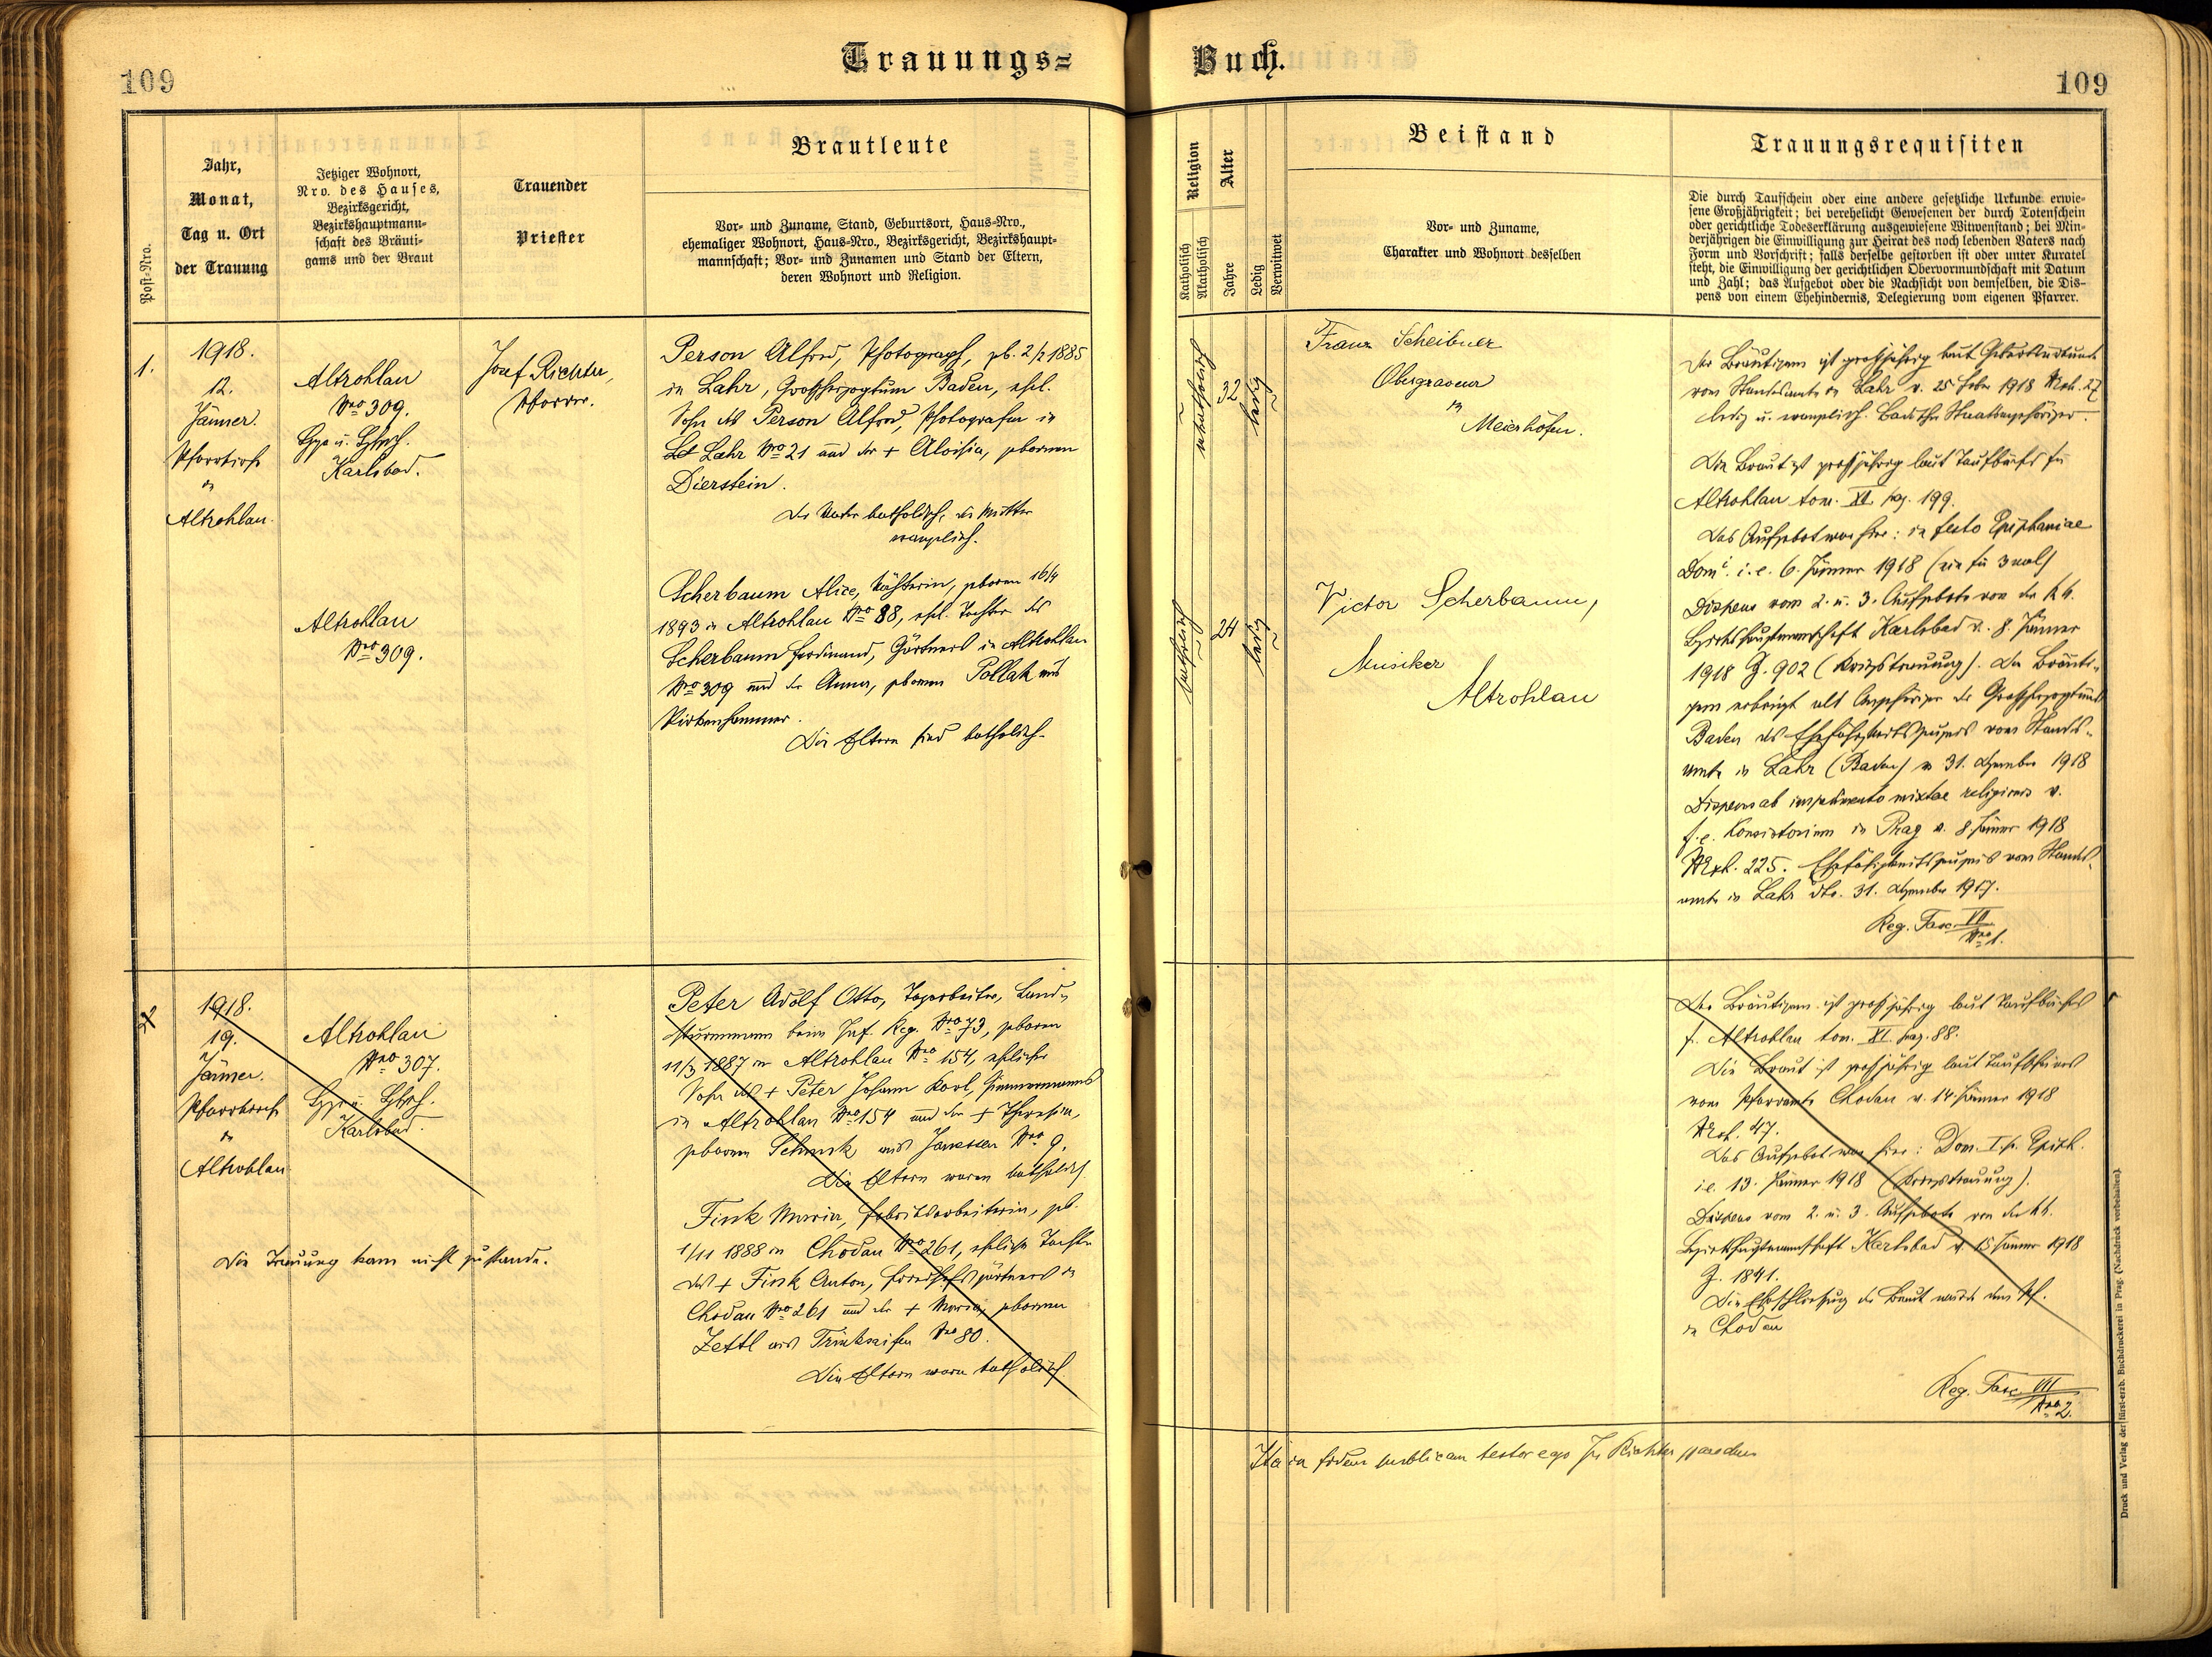 109
Trauungs=
Buch.
109
Post-Nro.
Jahr,
Monat,
Tag u. Ort
der Trauung
Jetziger Wohnort,
Nro. des Hauses,
Bezirksgericht,
Bezirkshauptmann-
schaft des Bräuti-
gams und der Braut
Trauender
Priester
Brautleute
Vor- und Zuname, Stand, Geburtsort, Haus-Nro.,
ehemaliger Wohnort, Haus-Nro., Bezirksgericht, Bezirkshaupt-
mannschaft; Vor- und Zunamen und Stand der Eltern,
deren Wohnort und Religion.
Religion
Katholisch
Akatholisch
Alter
Jahre
Ledig
Verwitwet
Beistand
Vor- und Zuname,
Charakter und Wohnort desselben
Trauungsrequisiten
Die durch Taufschein oder eine andere gesetzliche Urkunde erwie-
sene Großjährigkeit; bei verehelicht Gewesenen der durch Totenschein
oder gerichtliche Todeserklärung ausgewiesene Witwenstand; bei Min-
derjährigen die Einwilligung zur Heirat des noch lebenden Vaters nach
Form und Vorschrift; falls derselbe gestorben ist oder unter Kuratel
steht, die Einwilligung der gerichtlichen Obervormundschaft mit Datum
und Zahl; das Aufgebot oder die Nachsicht von demselben, die Dis-
pens von einem Ehehindernis, Delegierung vom eigenen Pfarrer.
1.
1918.
12.
Jänner.
Pfarrkirche
in
Altrohlau.
Altrohlau
Nro 309.
Karlsbad.
Josef Richter,
Pfarrer.
Person Alfred, Photograph, gb. 2/2 1885
in Lahr, Großherzogtum Baden, ehel.
Sohn des Person Alfred, Photografen in
Lahr Nro 21 und der + Aloisia, geborenen
Dierstein.
Der Vater katholisch, die Mutter
evanglisch.
Altrohlau
Nro 309.
Scherbaum Alice, Nähterin, geboren 16/4
1893 in Altrohlau Nro 88, ehel. Tochter des
Scherbaum Ferdinand, Gärtners in Altrohlau
Nro 309 und der Anna, geborenen Pollak aus
Pirkenhammer.
Die Eltern sind katholisch.
akatholisch
32
ledig
katholisch
24
ledig
Franz Scheibner
Obergraveur
in
Meierhöfen.
Victor Scherbaum,
Musiker
Altrohlau
Der Bräutigam ist großjährig laut Geburtsurkunde
vom Standesamte in Lahr v. 25 1918 27
ledig u. evanglisch. Badischer Staatsangehöriger.
Die Braut ist großjährig laut Taufbuchs für
Altrohlau tom. XI. pag. 199.
Das Aufgebot war hier: in festo Epiphaniae
Dom. i. e. 6. Jänner 1918 (ein für 3 mal)
Dispens vom 2. u. 3. Aufgebote von der k.k.
Bezirkshauptmannschaft Karlsbad v. 8. Jänner
1918 Z. 902 (Kriegstrauung). Der Bräuti-
gam erbringt als Angehöriger des Großherzogtums
Baden das Ehefähigkeitszeugnis vom Stands-
amte in Lahr (Baden) v. 31. Dezember 1918
Dispens ab impedimento mixtae religionis v.
f. e. Konsistorium in Prag v. 8 Jänner 1918
225. Ehefähigkeitszeugnis vom Stands-
amte in Lahr dto. 31. Dezember 1917.
Reg. Fasc. VII
Nro 1.
2
1918.
19.
Jänner.
Pfarrkirche
in
Altrohlau
Altrohlau
Nro 307.
Karlsbad.
Die Trauung kam nicht zustande.
Peter Adolf Otto, Tagarbeiter, Land-
sturmmann beim Inf. Reg. Nro 73, geboren
11/3 1887 in Altrohlau Nro 154, ehelicher
Sohn des + Peter Johann Karl, Zimmermanns
in Altrohlau Nro 154 und der + Theresia,
geborenen Schmik aus Janessen Nro 9.
Die Eltern waren katholisch
Fink Maria, Fabriksarbeiterin, gb.
1/11 1888 in Chodau Nro 261, eheliche Tochter
des + Fink Anton, Friedhofsgärtners in
Chodau Nro 261 und der + Maria, geborenen
Zettl aus Trinkseifen Nro 80.
Die Eltern waren katholisch.
Der Bräutigam ist großjährig laut Taufbuches
f. Altrohlau tom. XI. pag. 88.
Die Braut ist großjährig laut Taufscheines
vom Pfarramte Chodau v. 14. Jänner 1918
47.
Das Aufgebot war hier: Dom. I. p. Epiph.
i.e. 13. Jänner 1918 (Kriegstrauung).
Dispens vom 2. u. 3. Aufgebote von der k.k.
Bezirkshauptmannschaft Karlsbad v. 15 Jänner 1918
Z. 1841.
Die Eheschließung der Braut wurde dem
in Chodau
Reg. Fasc. VII
Nro 2.
Ita in fidem publicam testor ego Jos Richter parochus
Druck und Verlag der fürst-erzb. Buchdruckerei in Prag. (Nachdruck vorbehalten).